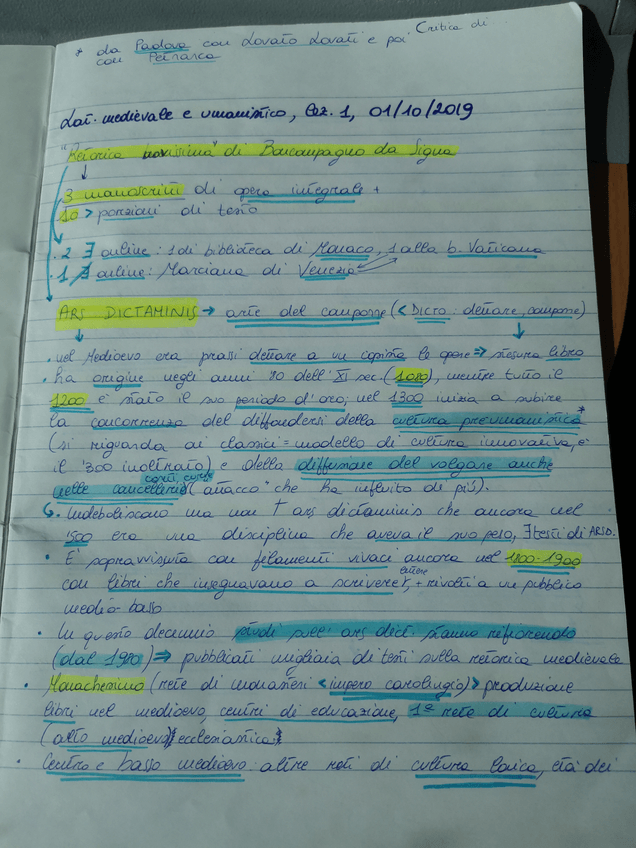 * da Padova con Lovato Lovati e poi Critica di...
con Petrarca
Lat. medievale e umanistico, lez. 1, 01/10/2019
"Retorica novissima" di Boncompagno da Signa
↓
3 manoscritti di opera integrale +
10 > porzioni di testo
. 2 ∃ online: 1 di biblioteca di Monaco, 1 alla b. Vaticana
. 1 ∄ online: Marciana di Venezia
ARS DICTAMINIS → arte del comporre (< DICTO: dettare, comporre)
• nel Medioevo era prassi dettare a un copista le opere => stesura libro
• ha origine negli anni '80 dell'XI sec. (1080), mentre tutto il
1200 è stato il suo periodo d'oro; nel 1300 inizia a subire
la concorrenza del diffondersi della cultura preumanistica*
(si riguarda ai classici = modello di cultura innovativa, è
il '300 inoltrato) e della diffusione del volgare anche
nelle cancellerie ("attacco" che ha influito di più).
Indeboliscono ma non † ars dictaminis che ancora nel
'500 era una disciplina che aveva il suo peso, ∃ testi di ARSD.
• È sopravvissuta con filamenti vivaci ancora nel 1800-1900
con libri che insegnavano a scrivere lettere, + rivolti a un pubblico
medio-basso
• In questo decennio studi sull'ars dict. stanno rifiorendo
(dal 1980) => pubblicati migliaia di testi sulla retorica medievale
• Monachesimo (rete di monasteri < impero carolingio) > produzione
libri nel medioevo, centri di educazione, 1ª rete di cultura
(alto medioevo) ecclesiastica
• Centro e basso medioevo: altre reti di cultura laica, età dei